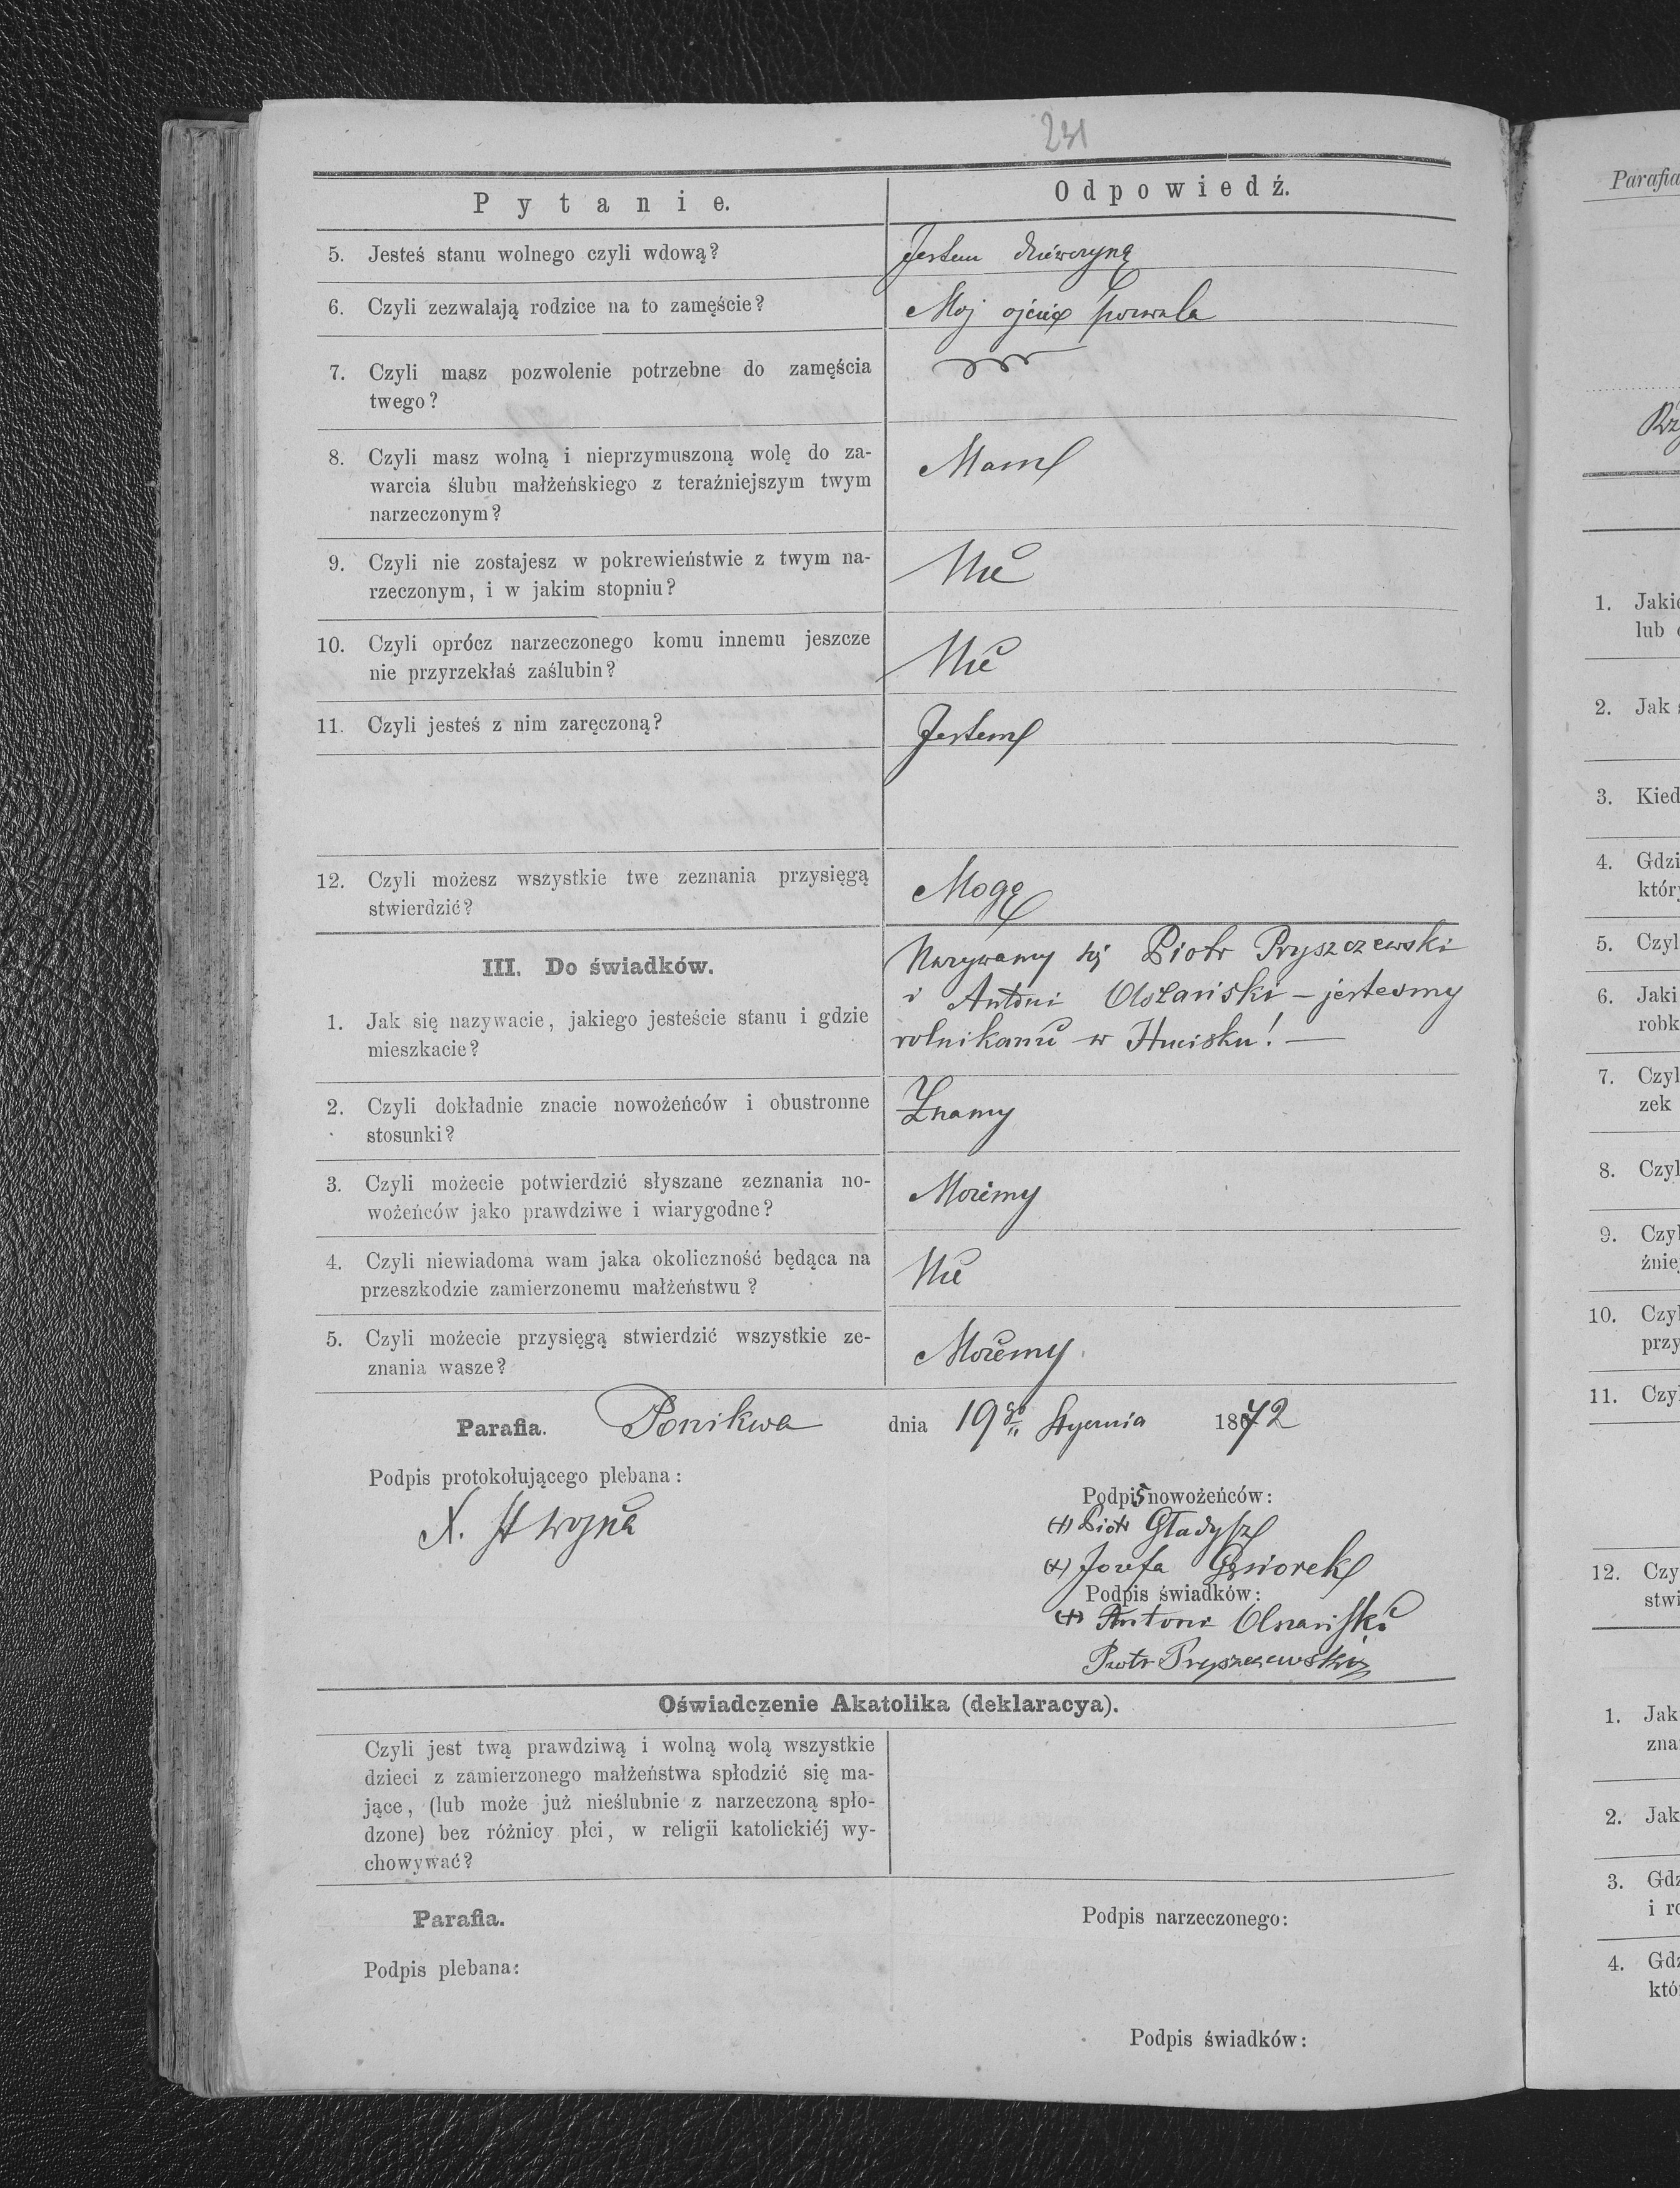 231
Pytanie. Odpowiedź.
5. Jesteś stanu wolnego czyli wdową? Jestem dziewczyną
6. Czyli zezwalają rodzice na to zamęście? Moj ojciec pozwala
7. Czyli masz pozwolenie potrzebne do zamęścia
twego?
8. Czyli masz wolną i nieprzymuszoną wolę do za- Mam
warcia ślubu małżeńskiego z teraźniejszym twym
narzeczonym?
9. Czyli nie zostajesz w pokrewieństwie z twym na- Nie
rzeczonym, i w jakim stopniu?
10. Czyli oprócz narzeczonego komu innemu jeszcze Nie
nie przyrzekłaś zaślubin?
11. Czyli jesteś z nim zaręczoną? Jestem
12. Czyli możesz wszystkie twe zeznania przysięgą Mogę
stwierdzić?
III. Do świadków.
Nazywamy się Piotr Pryszczewski
i Antoni Olszański – jestesmy
rolnikami w Hucisku! —
1. Jak się nazywacie, jakiego jesteście stanu i gdzie
mieszkacie?
2. Czyli dokładnie znacie nowożeńców i obustronne Znamy
stosunki?
3. Czyli możecie potwierdzić słyszane zeznania no- Możemy
wożeńców jako prawdziwe i wiarygodne?
4. Czyli niewiadoma wam jaka okoliczność będąca na Nie
przeszkodzie zamierzonemu małżeństwu?
5. Czyli możecie przysięgą stwierdzić wszystkie ze- Możemy.
znania wasze?
Parafia. Ponikwa dnia 19go Stycznia 1872
Podpis protokołującego plebana:
X. St Wojna
Podpis nowożeńców:
(+) Piotr Gładysz
(+) Jozefa Gąsiorek
Podpis świadków:
(+) Antoni Olszański
Piotr Pryszczewski
Oświadczenie Akatolika (deklaracya).
Czyli jest twą prawdziwą i wolną wolą wszystkie
dzieci z zamierzonego małżeństwa spłodzić się ma-
jące, (lub może już nieślubnie z narzeczoną spło-
dzone) bez różnicy płci, w religii katolickiéj wy-
chowywać?
Parafia.
Podpis narzeczonego:
Podpis plebana:
Podpis świadków:
Parafia
1. Jakie
lub
2. Jak
3. Kied
4. Gdzi
któr
5. Czyl
6. Jaki
robk
7. Czyl
zek
8. Czyl
9. Czyl
źnie
10. Czyl
przy
11. Czyl
12. Czy
stwi
1. Jak
zna
2. Jak
3. Gdz
i ro
4. Gdz
któ